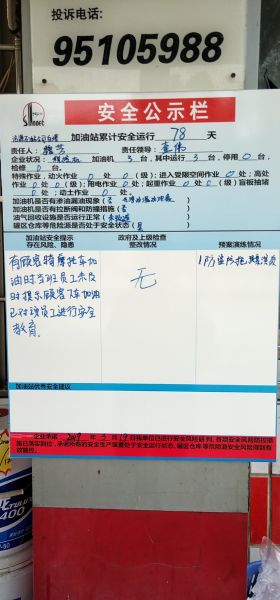 投诉电话:
95105988
SINOPEC
安全公示栏
加油站累计安全运行 78 天
责任人: 责任领导:
企业状况: 加油机 3 台, 其中运行 3 台, 停用 0 台,
检修 0 台。
特殊作业, 动火作业 0 处 0 (级); 进入受限空间作业 0 处; 高处
作业 0 处 0 (级); 用电作业 0 处; 起重作业 0 处 0 (级); 盲板抽堵
0 处, 动土作业 0 处。
加油机是否有渗油漏油现象(否
加油机是否有拉断阀和防撞措施(
油气回收设施是否运行正常(
罐区仓库等危险源是否处于安全状态(是
加油站安全提示
存在风险、隐患
政府及上级检查
整改情况
预案演练情况
有顾客骑摩托车加
油时当班员工未及
时提示顾客下车加油
已对该员工进行安全
教育。
无
加油站优秀安全建议
企业承诺: 2019 年 3 月 19 日我单位已进行安全风险研判, 各项安全风险防控措
施已落实到位, 承诺所有的安全生产装置处于安全运行状态, 罐区仓库等危险源安全风险得到有
效管控。
400